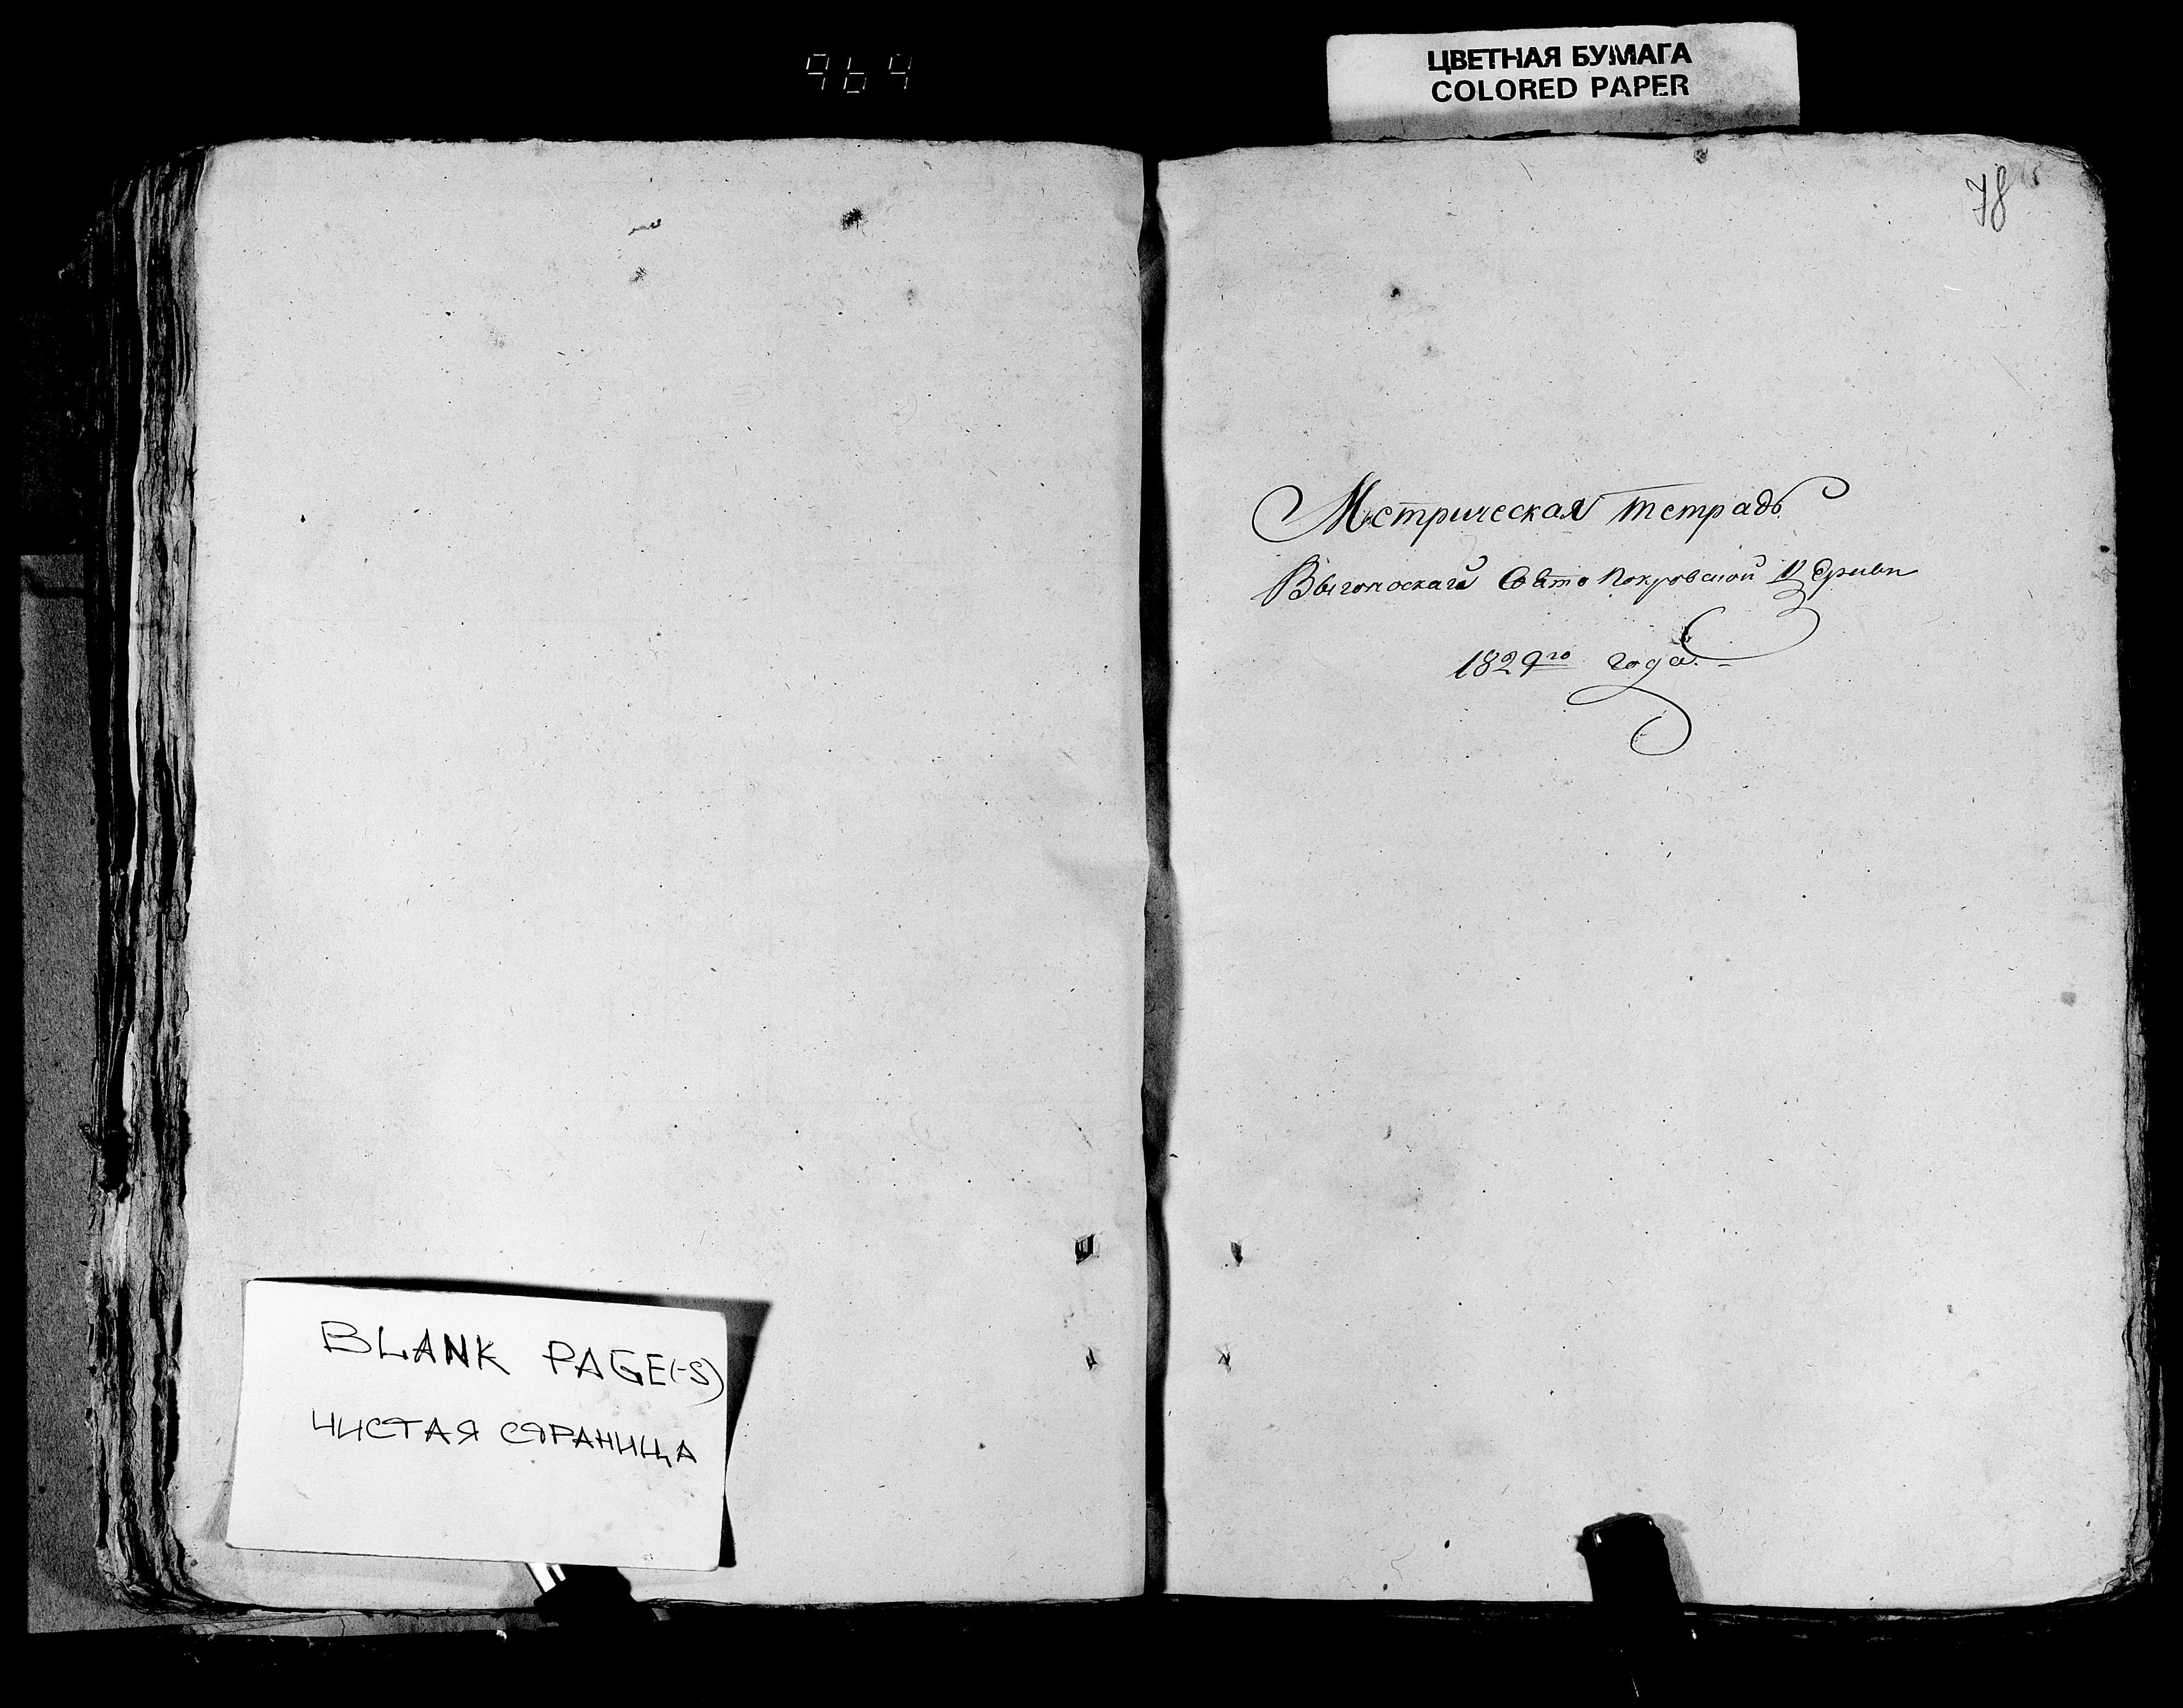 969
ЦВЕТНАЯ БУМАГА
COLORED PAPER
78
Метрическая тетрадь
Выгоноскай Свято Покровской Церкви
1829го года.
BLANK PAGE(-S)
ЧИСТАЯ СТРАНИЦА